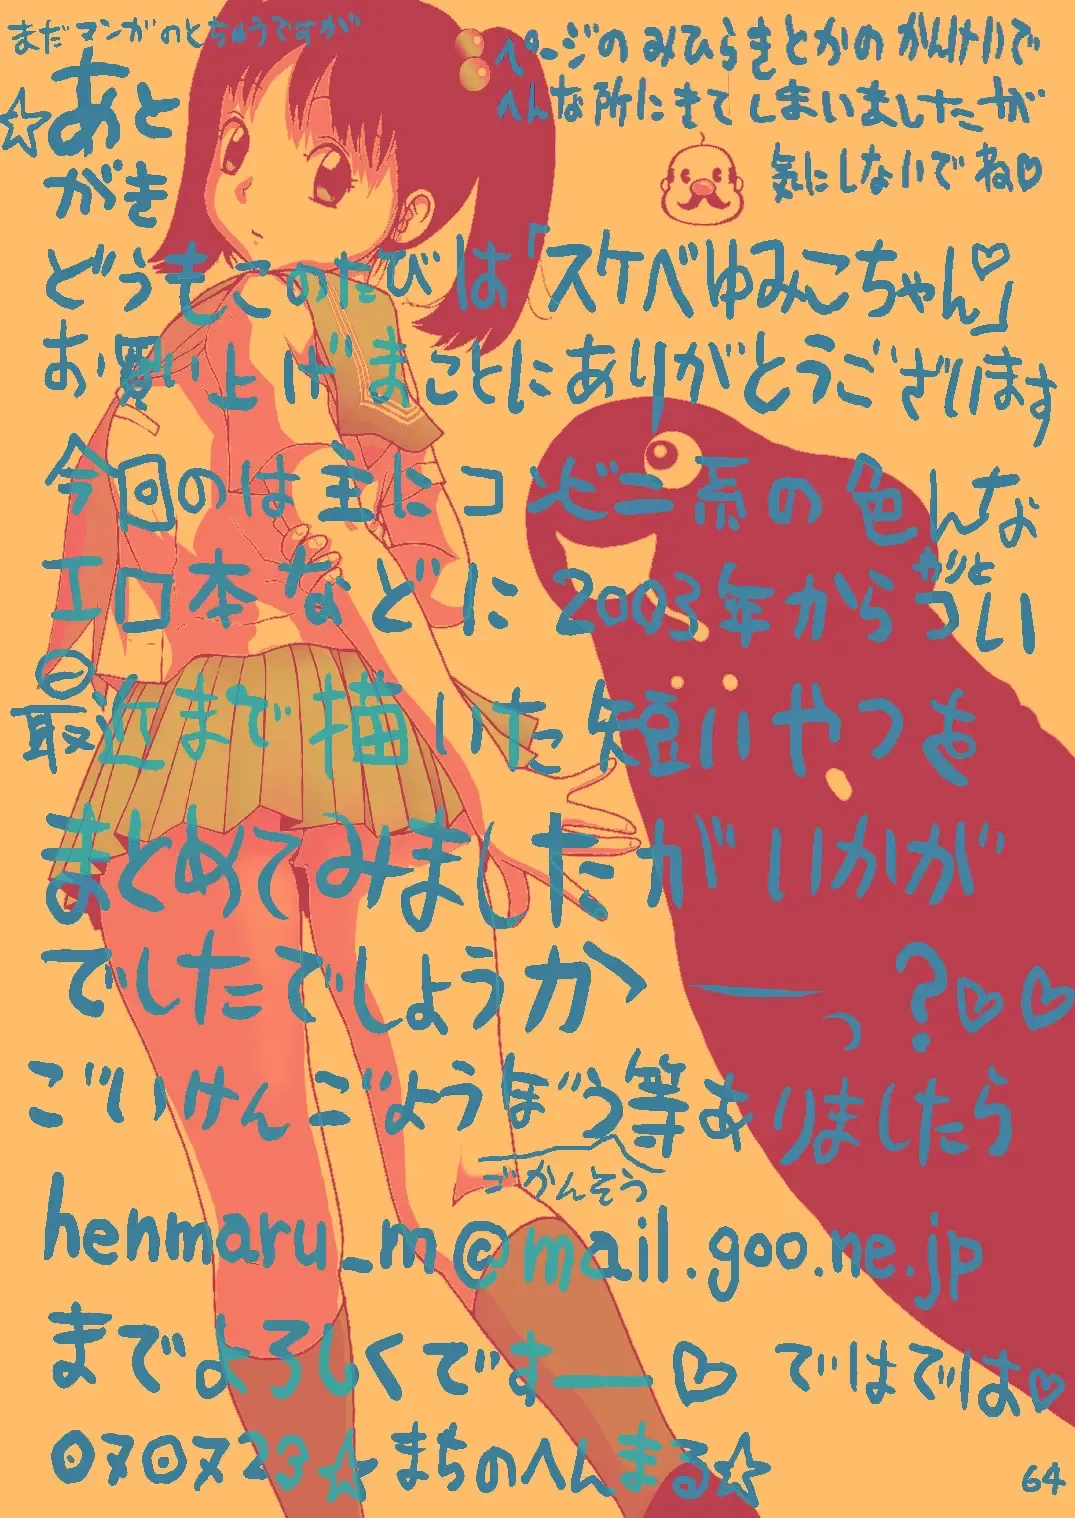 まだマンガのとちゅうですが
☆あとがき
ページのみひらきとかのかんけいで
へんな所にきてしまいましたが
気にしないでね♡
どうもこのたびは「スケベゆみこちゃん♡」
お買い上げまことにありがとうございます
今回のは主にコンビニ系の色んな
エロ本などに2003年からづい
最近まで描いた短いやつを
まとめてみましたがいかが
でしたでしょうかーっ?♡♡
ごいけんごようぼう等ありましたら
ごかんそう
henmaru_m@mail.goo.ne.jp
までよろしくですー♡ ではでは♡
070723☆まちのへんまる☆
64